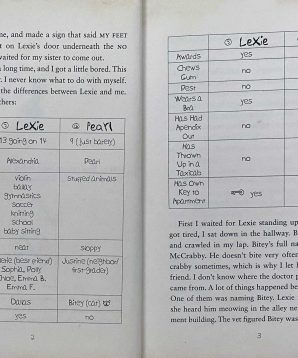 ne, and made a sign that said MY FEET
t on Lexie's door underneath the NO
wait for my sister to come out.
long time, and I got a little bored. This
r. I never know what to do with myself.
the differences between Lexie and me.
thers:
Lexie Pearl
13 going on 14 9 (just barely)
Alexandria Pearl
Violin Stuffed animals
ballet
gymnastics
soccer
knitting
school
baby sitting
neat sloppy
(best friend) Justine (neighbor/
Sophia, Polly first grader)
Emma B.
Emma F.
Davas Bitey (cat)
yes no
2
Lexie
Awards yes
Chews no
Gum
Desk no
Wears a yes
Bra
Has Had no
Apendix
Out
Has no
Thrown
Up in a
Taxicab
Has Own yes
Key to
Apartment
First I waited for Lexie standing up
got tired, I sat down in the hallway. B
and crawled in my lap. Bitey's full na
McCrabby. He doesn't bite very often
crabby sometimes, which is why I let h
friend. I don't know where the doctor p
came from. A lot of things happened be
One of them was naming Bitey. Lexie
she heard him meowing in the alley ne
ment building. The vet figured Bitey was
3